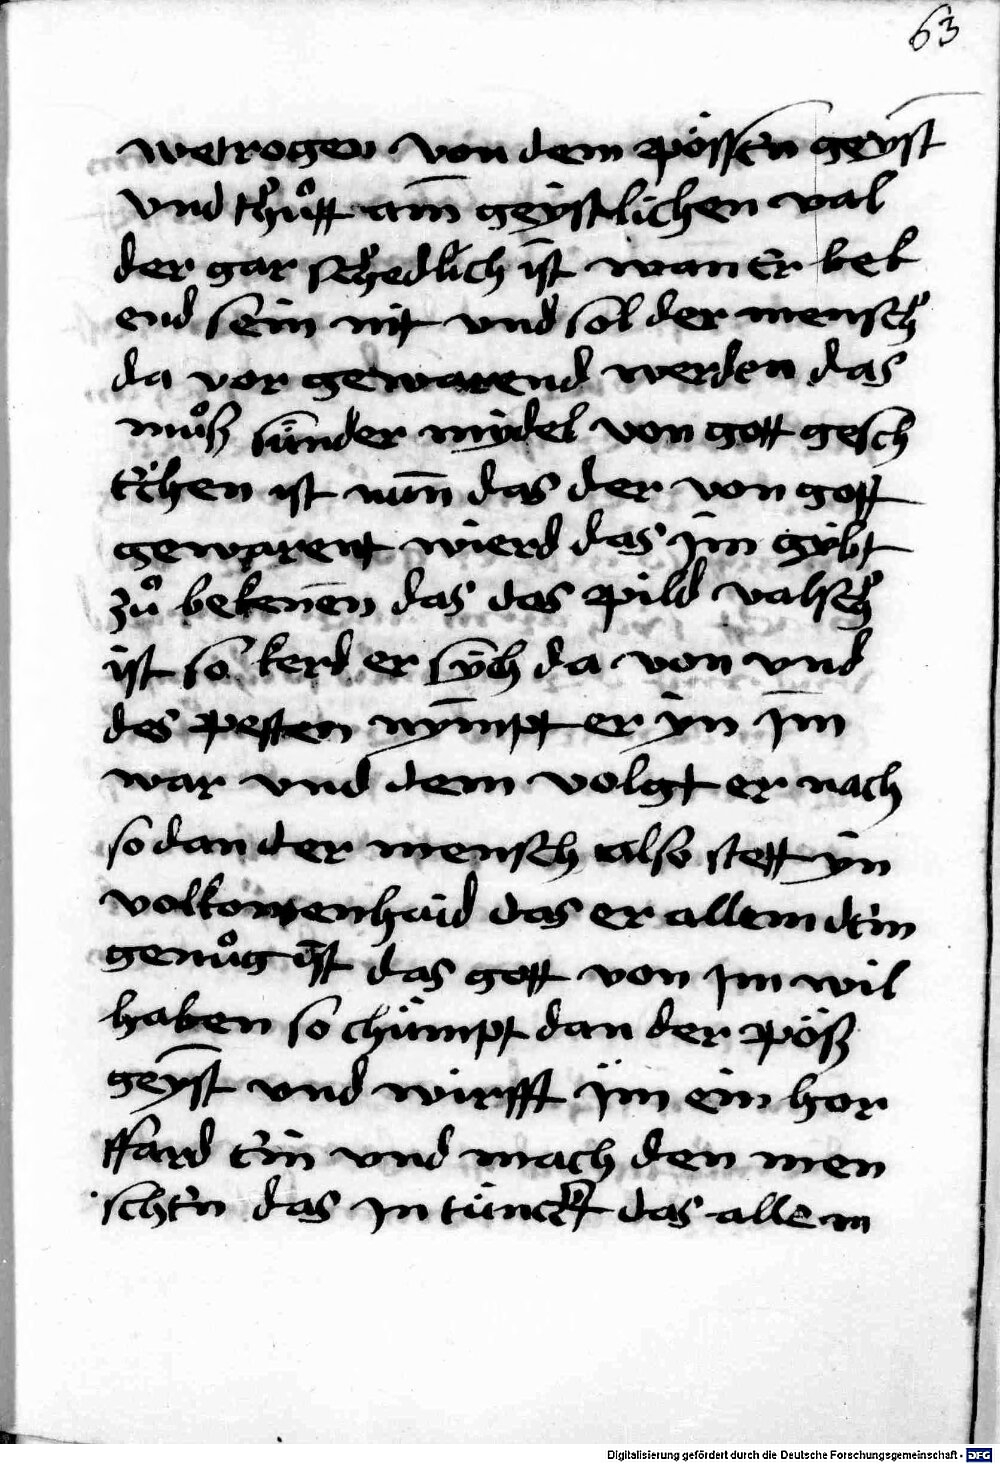 63
wetrogen von dem pössten geyst
vnd thuͦtt am̅ geystlichen val
der gar schedlich ist wan er bek
end sein nit vnd sol der mensch
da vor gewarend werden das
muͦß sünder mydel von gott gesch
echen ist nun̅ das der von gott
gewarent wierd das Jm gybt
zuͦ beken̅en das das pild valsch
ist so kerd er sych da von vnd
des pesten nympt er yn Jm̅
war vnd dem volgt er nach
so dan der mensch also stett yn
volkomenhaid das er allem dem
genuͦg ist das gott von Jm wil
haben so chümpt dan der pöß
geyst vnd wirfft Jm ein hor
ffard ein vnd mach den men
schen das Jn tünckt das allem
Digitalisierung gefördert durch die Deutsche Forschungsgemeinschaft - DFG